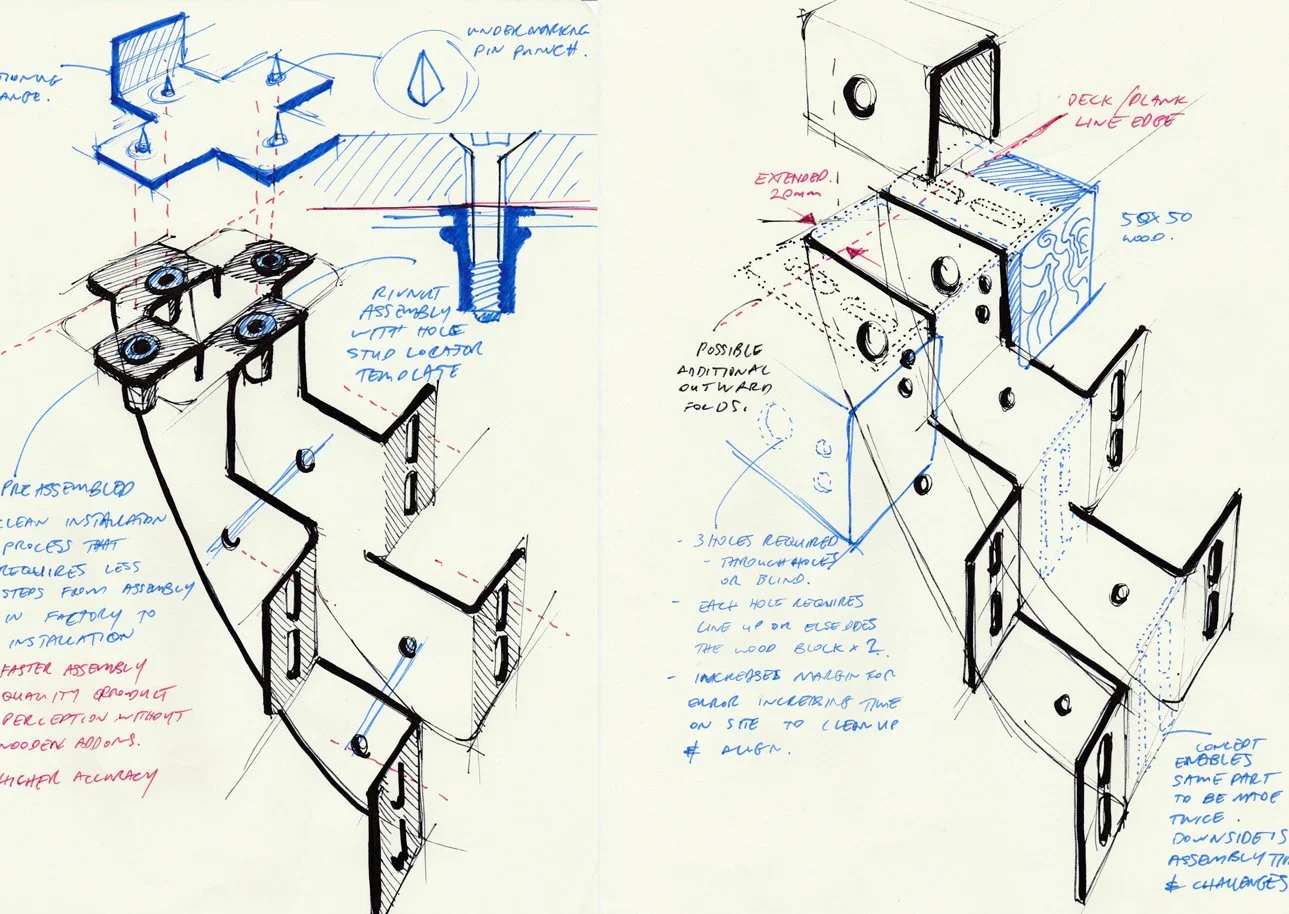 UNDERMARKING
PIN PUNCH.
RIVNUT
ASSEMBLY
WITH HOLE
STUD LOCATOR
TEMPLATE
PRE ASSEMBLED
CLEAN INSTALLATION
PROCESS THAT
REQUIRES LESS
STEPS FROM ASSEMBLY
IN FACTORY TO
INSTALLATION
FASTER ASSEMBLY
QUALITY PRODUCT
PERCEPTION WITHOUT
WOODEN ADDONS.
HIGHER ACCURACY
DECK/PLANK
LINE EDGE
EXTENDED.
20mm
50X50
WOOD.
POSSIBLE
ADDITIONAL
OUTWARD
FOLDS.
- 3 HOLES REQUIRED
- THROUGH HOLES
OR BLIND.
- EACH HOLE REQUIRES
LINE UP OR ELSE
THE WOOD BLOCK x 2.
- INCREASED MARGIN FOR
ERROR INCREASING TIME
ON SITE TO CLEAN UP
& ALIGN.
CONCEPT
ENABLES
SAME PART
TO BE MADE
TWICE.
DOWNSIDE IS
ASSEMBLY
& CHALLENGES